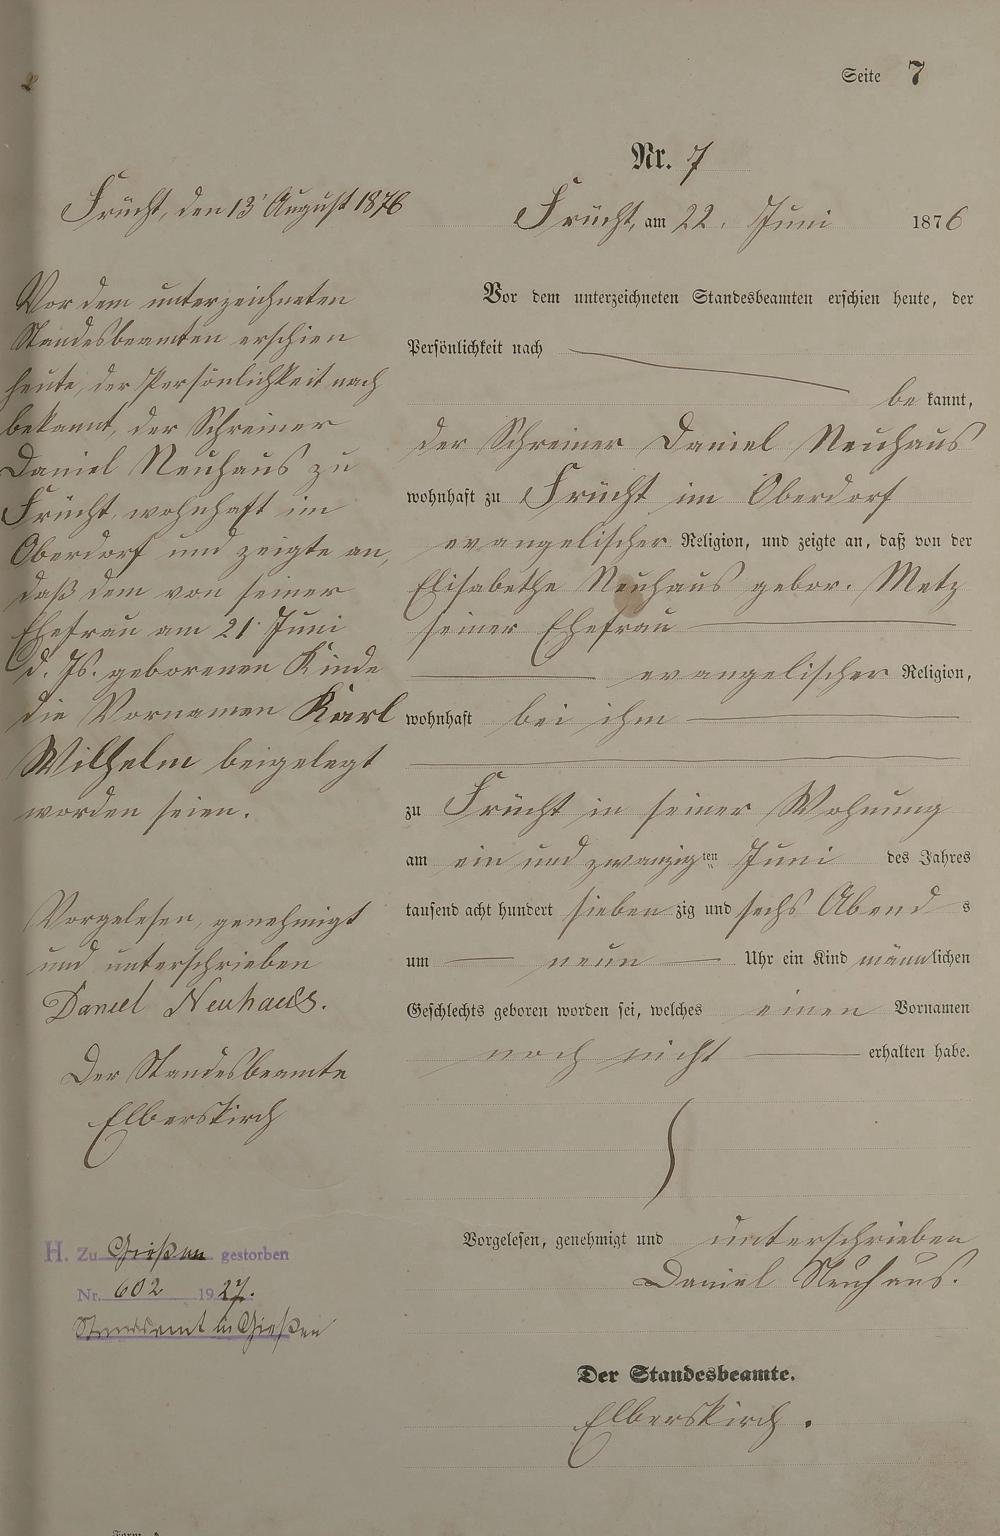 Seite 7
Nr. 7
Frücht, am 22. Juni 1876
Vor dem unterzeichneten Standesbeamten erschien heute, der
Persönlichkeit nach
be kannt,
der Schreiner Daniel Neuhaus
wohnhaft zu Frücht im Oberdorf
evangelischer Religion, und zeigte an, daß von der
Elisabethe Neuhaus gebor. Metz
seiner Ehefrau
evangelischer Religion,
wohnhaft bei ihm
zu Frücht in seiner Wohnung
am ein und zwanzigten Juni des Jahres
tausend acht hundert siebenzig und sechs Abends
um neun Uhr ein Kind männlichen
Geschlechts geboren worden sei, welches einen Vornamen
noch nicht erhalten habe.
Vorgelesen, genehmigt und unterschrieben
Daniel Neuhaus.
Der Standesbeamte.
Elberskirch.
Frücht, den 13 August 1876
Vor dem unterzeichneten
Standesbeamten erschien
heute, der Persönlichkeit nach
bekannt, der Schreiner
Daniel Neuhaus zu
Frücht, wohnhaft im
Oberdorf und zeigte an,
daß dem von seiner
Ehefrau am 21. Juni
d. Js. geborenen Kinde
die Vornamen Karl
Wilhelm beigelegt
worden seien.
Vorgelesen, genehmigt
und unterschrieben
Daniel Neuhaus.
Der Standesbeamte
Elberskirch
H. Zu Gießen gestorben
Nr. 602 1927.
Standesamt in Gießen